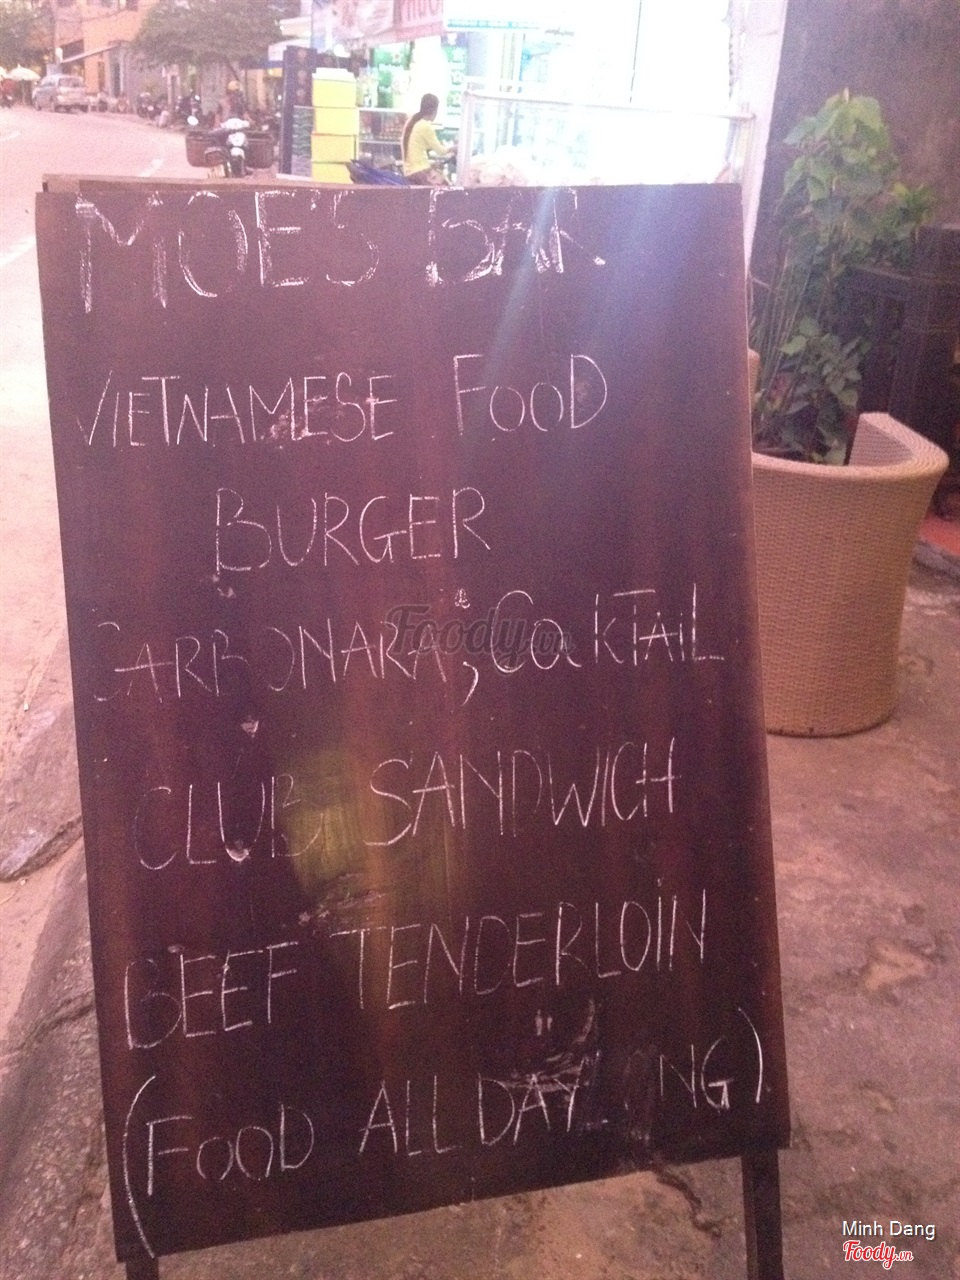 MOE'S BAR
VIETNAMESE FOOD
BURGER
CARBONARA, COCKTAIL
CLUB SANDWICH
BEEF TENDERLOIN
(FOOD ALL DAY LONG)
Foody.vn
Minh Dang
Foody.vn